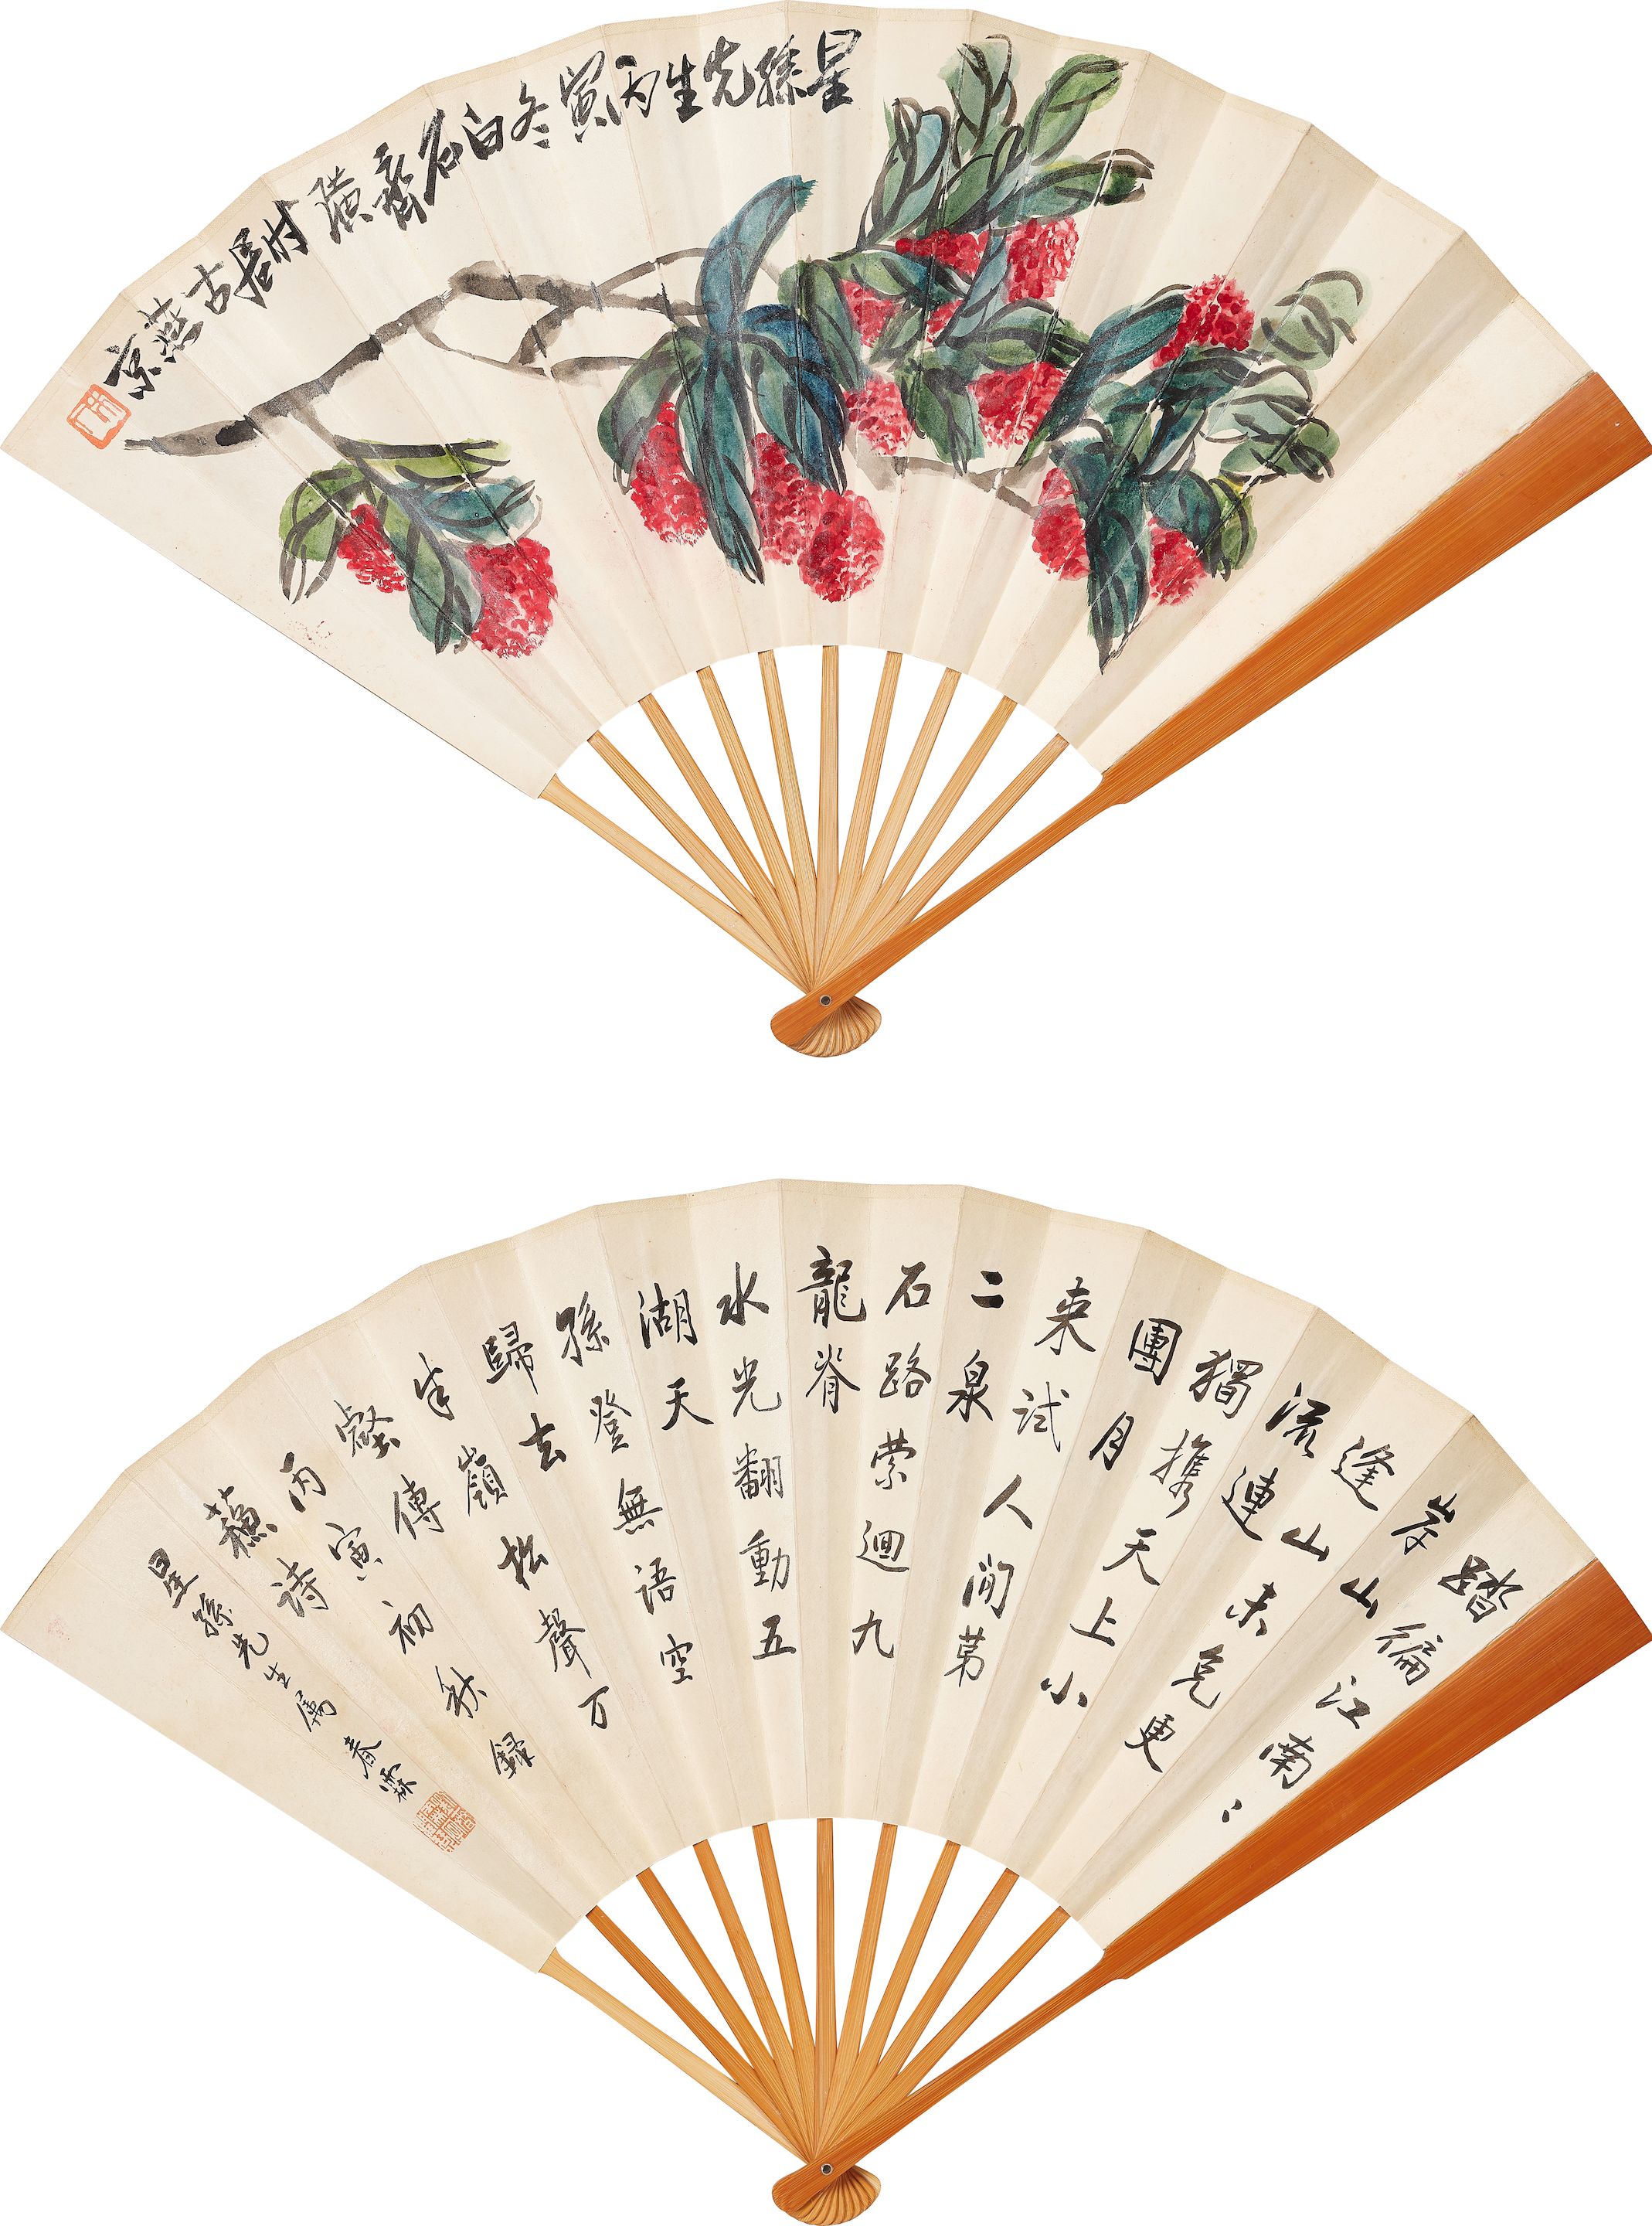 星孫先生丙寅冬白石齊璜时居古燕京
踏徧江南〻
岸山
逢山未免更
流連
獨携天上小
團月
来試人間苐
二泉
石路萦迴九
龍脊
水光翻動五
湖天
孫登無語空
歸去
半嶺松聲万
壑傳
丙寅初秋録
蘇詩
星孫先生属 春霖